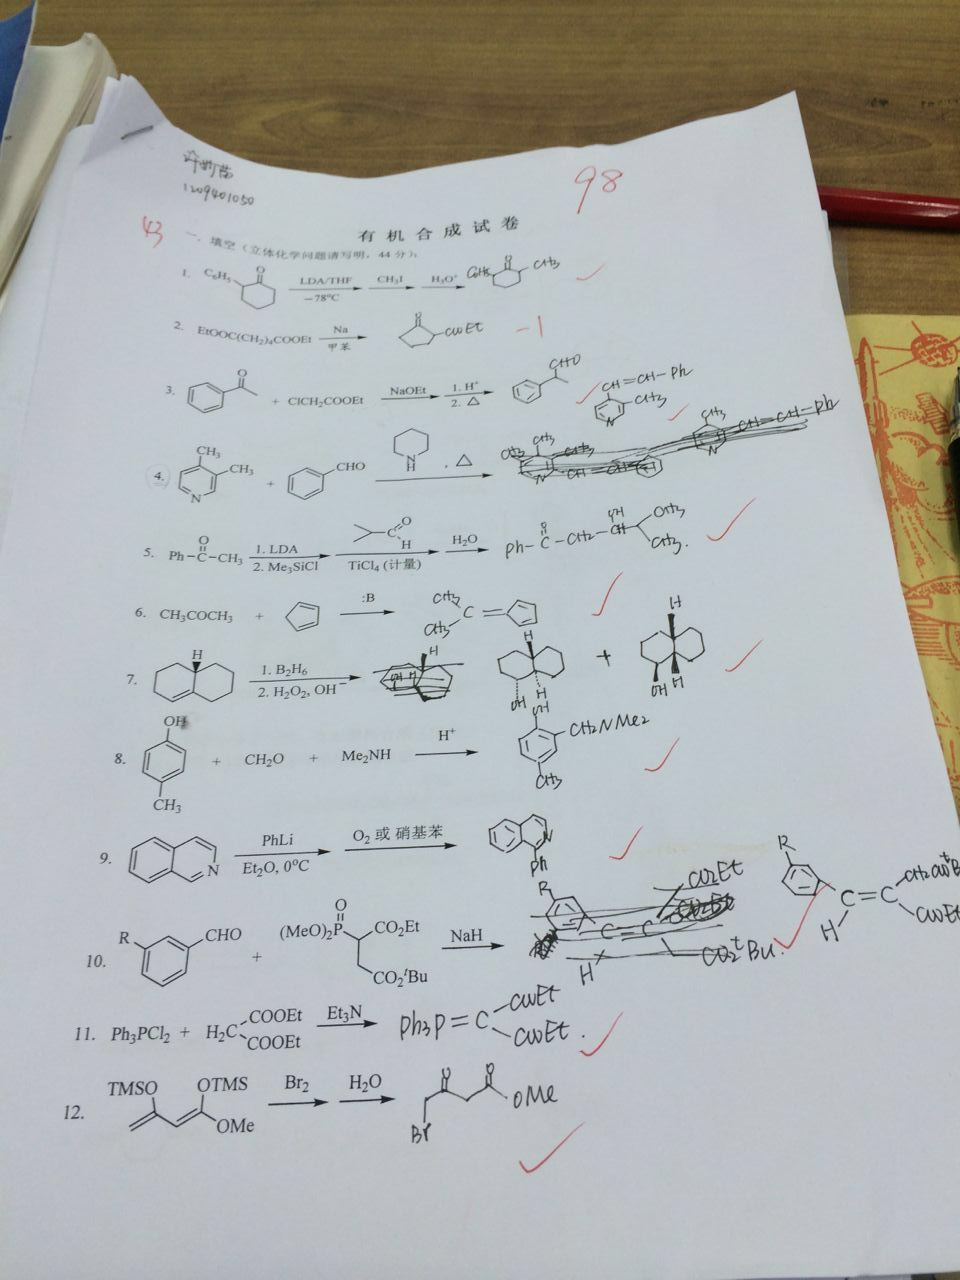 1209401050
98
43
有机合成试卷
一、填空(立体化学问题请写明,44分):
1. C6H5 O LDA/THF -78°C CH3I H3O+ C6H5 O CH3
2. EtOOC(CH2)4COOEt Na 甲苯 O COOEt -1
3. O + ClCH2COOEt NaOEt 1. H+ 2. △ CHO
CH=CH-Ph
CH3
N
4. CH3 CH3 N + CHO N H , △
5. Ph-C-CH3 O 1. LDA 2. Me3SiCl C O H TiCl4 (计量) H2O Ph-C-CH2-CH O OH CH3 CH3.
6. CH3COCH3 + :B CH3 CH3 C
7. H 1. B2H6 2. H2O2, OH- H OH H + H OH H
8. OH CH3 + CH2O + Me2NH H+ OH CH2NMe2 CH3
9. N PhLi Et2O, 0°C O2 或 硝基苯 N Ph
10. R CHO + (MeO)2P O CO2Et CO2tBu NaH R H C=C COOEt
11. Ph3PCl2 + H2C COOEt COOEt Et3N Ph3P=C COOEt COOEt.
12. TMSO OTMS OMe Br2 H2O O O OMe Br